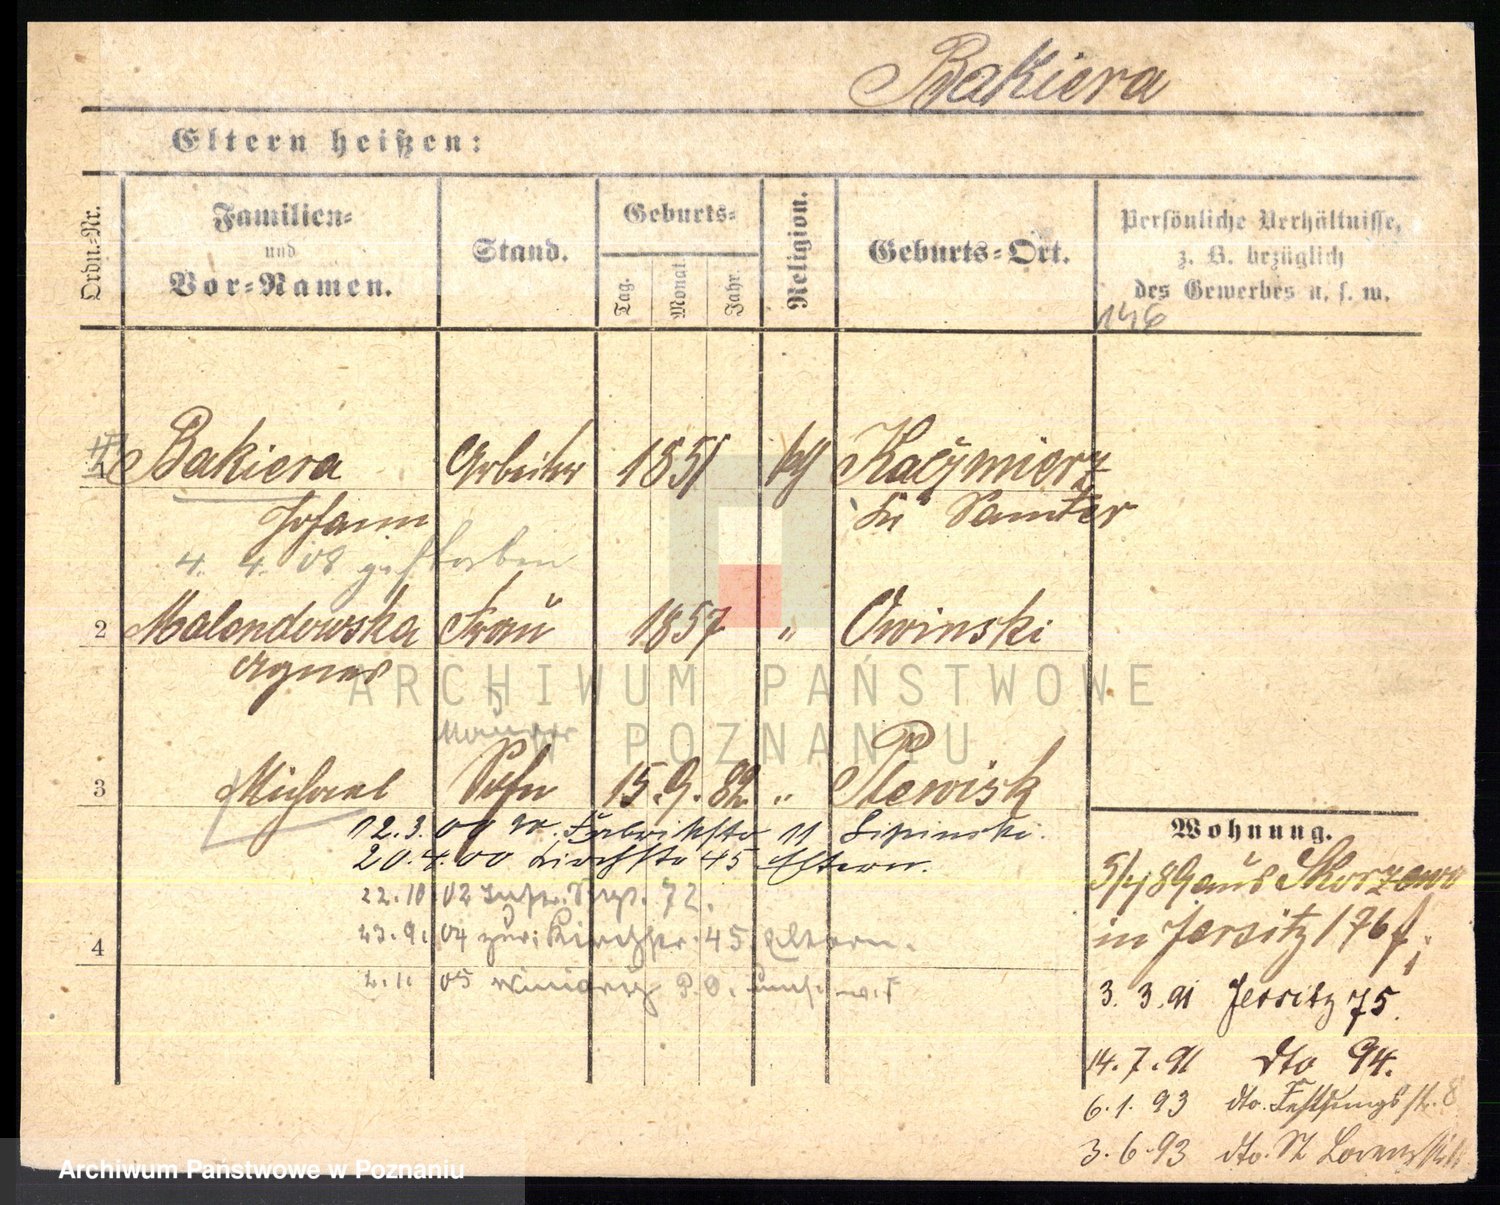 Bakiera
Eltern heißen:
Ordn.=Nr.
Familien=
und
Vor=Namen.
Stand.
Geburts=
Tag.
Monat
Jahr.
Religion.
Geburts=Ort.
Persönliche Verhältnisse,
z. B. bezüglich
des Gewerbes u. s. w.
146
1 Bakiera Arbeiter 1851 kth Kaźmierz
Johann Kr Samter
4. 4. 08 gestorben
2 Malendowska Frau 1857 " Owinski
Agnes
Maurer
3 Michael Sohn 15. 9. 82 " Plewisk
12. 3. 00 Fabrikstr 11 Lipinski.
20. 4. 00 Kirchstr 45 Eltern.
22. 10 02 72.
23. 9. 04 zur: Kirchstr. 45 Eltern.
4
2. 11 05
Wohnung.
89 aus Skorzewo
in Jersitz 176
3. 3. 91 Jersitz 75.
14. 7. 91 dto 94.
6. 1. 93 dto. Festungsstr. 8
3. 6. 93 dto. St
ARCHIWUM PAŃSTWOWE
W POZNANIU
Archiwum Państwowe w Poznaniu